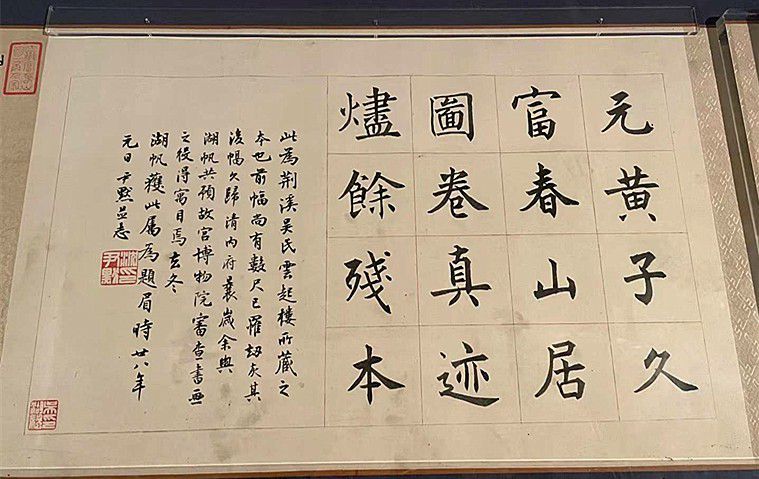 元黄子久
富春山居
圖卷真迹
燼餘殘本
此為荆溪吴氏雲起樓所藏之
本也前幅尚有數尺已罹劫灰其
後幅久歸清内府曩歲余與
湖帆共預故宫博物院審查書画
之役得寓目焉去冬
湖帆獲此属為題眉時廿八年
元日尹默並志
沈尹默